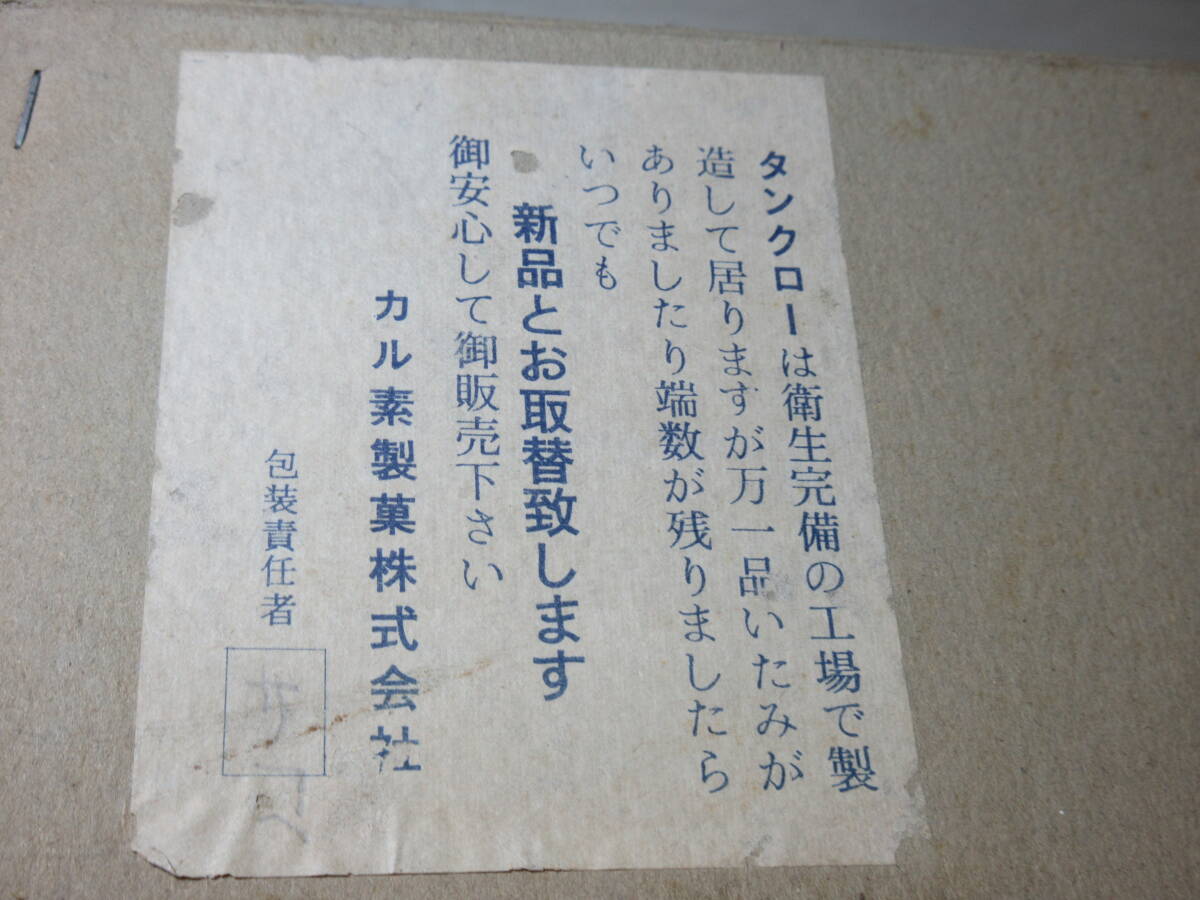 タンクローは衛生完備の工場で製
造して居りますが万一品いたみが
ありましたり端数が残りましたら
いつでも
新品とお取替致します
御安心して御販売下さい
カル素製菓株式会社
包装責任者